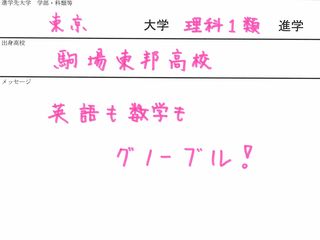 進学先大学 学部・科類等
東京 大学 理科1類 進学
出身高校
駒場東邦高校
メッセージ
英語も数学も
グノーブル!